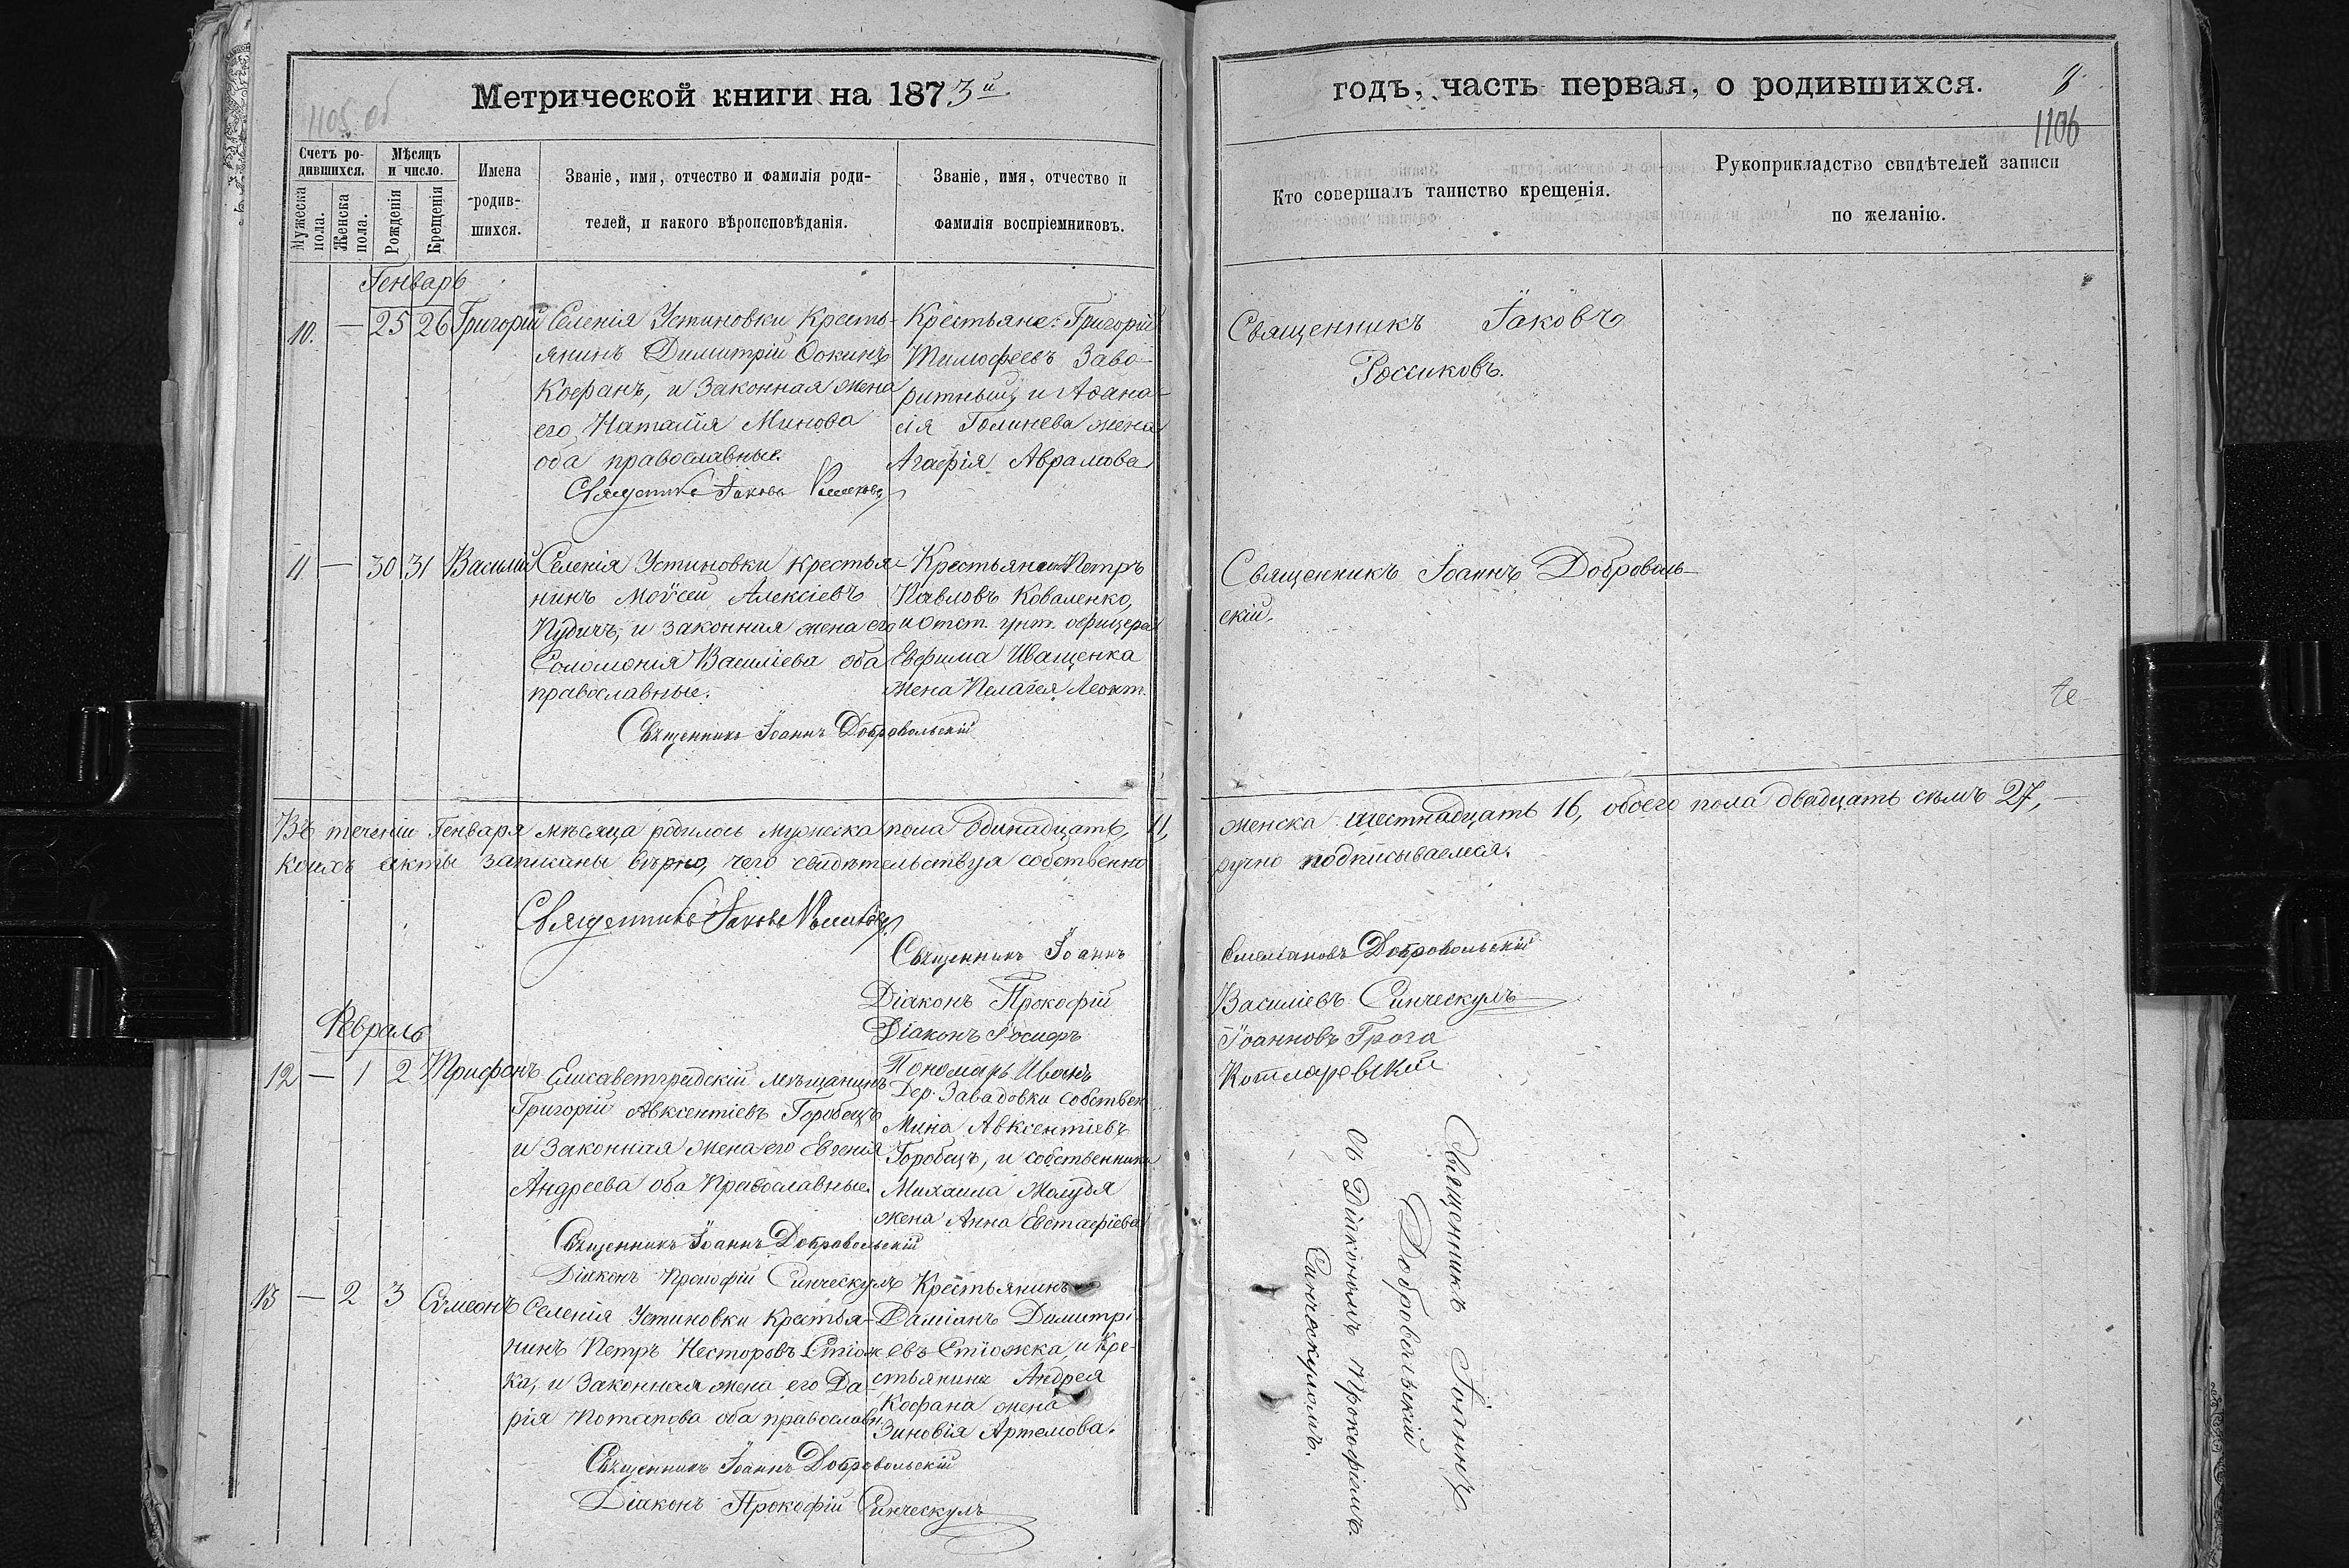 1105 об
Метрической книги на 1873й.
Счетъ ро-
дившихся.
Мужеска пола.
Женска пола.
Мѣсяцъ
и число.
Рожденія
Крещенія
Имена
родив-
шихся.
Званіе, имя, отчество и фамилія роди-
телей, и какого вѣроисповѣданія.
Званіе, имя, отчество и
фамилія воспріемниковъ.
Генварь
10. — 25 26 Григорій
Селенія Устиновки Кресть-
янинъ Димитрій Ѳокинъ
Кофанъ, и законная жена
его, Наталія Минова
оба православные.
Священникъ Іаковъ Россиковъ
Крестьяне: Григорій
Тимофеевъ Заво-
и Аѳана-
сія жена
Агафія Аврамова
11 — 30 31 Василій
Селенія Устиновки крестья-
нинъ Мойсей Алексіевъ
и законная жена его
Соломонія Василіева оба
православные.
Священникъ Іоаннъ Добровольскій
Петръ
Павловъ Коваленко,
и Отст. унт. офицера
Евфима Иващенка
жена Пелагея Леонт.
Въ теченіи Генваря мѣсяца родилось мужеска пола Одинадцать, 11,
коихъ акты записаны вѣрно, чего свидѣтельствуя собственно
Священникъ Іаковъ Россиковъ
Священникъ Іоаннъ
Діаконъ Прокофій
Діаконъ Іосифъ
Пономарь Иванъ
Февраль
12 — 1 2 Трифонъ
Елисаветградскій мѣщанинъ
Григорій Авксентіевъ Горобецъ
и законная жена его Евгенія
Андреева оба Православные.
Священникъ Іоаннъ Добровольскій
Діаконъ Прокофій Синческулъ
Дер. Завадовки собствен
Мина Авксентіевъ
Горобецъ, и собственника
Михаила Жолудя
жена Анна Евстафіева
13 — 2 3 Сѵмеонъ
Селенія Устиновки Крестья-
нинъ Петръ Несторовъ Стіож
ка, и законная жена его Да-
рія Потапова оба православн.
Священникъ Іоаннъ Добровольскій
Діаконъ Прокофій Синческулъ
Крестьянинъ
Даміанъ Димитрі-
евъ Стіожка, и Кре-
стьянина Андрея
Кофана жена
Зиновія Артемова.
годъ, часть первая, о родившихся.
8
1106
Кто совершалъ таинство крещенія.
Рукоприкладство свидѣтелей записи
по желанію.
Священникъ Іаковъ
Россиковъ.
Священникъ Іоаннъ Доброволь-
скій.
женска шестнадцать 16, обоего пола двадцать семъ 27, —
ручно подписываемся.
Емеліановъ Добровольскій
Василіевъ Синческулъ
Іоанновъ Грога
Котляревскій
Священникъ Іоаннъ
Добровольскій
Съ Діакономъ Прокофіемъ
Синческуломъ.